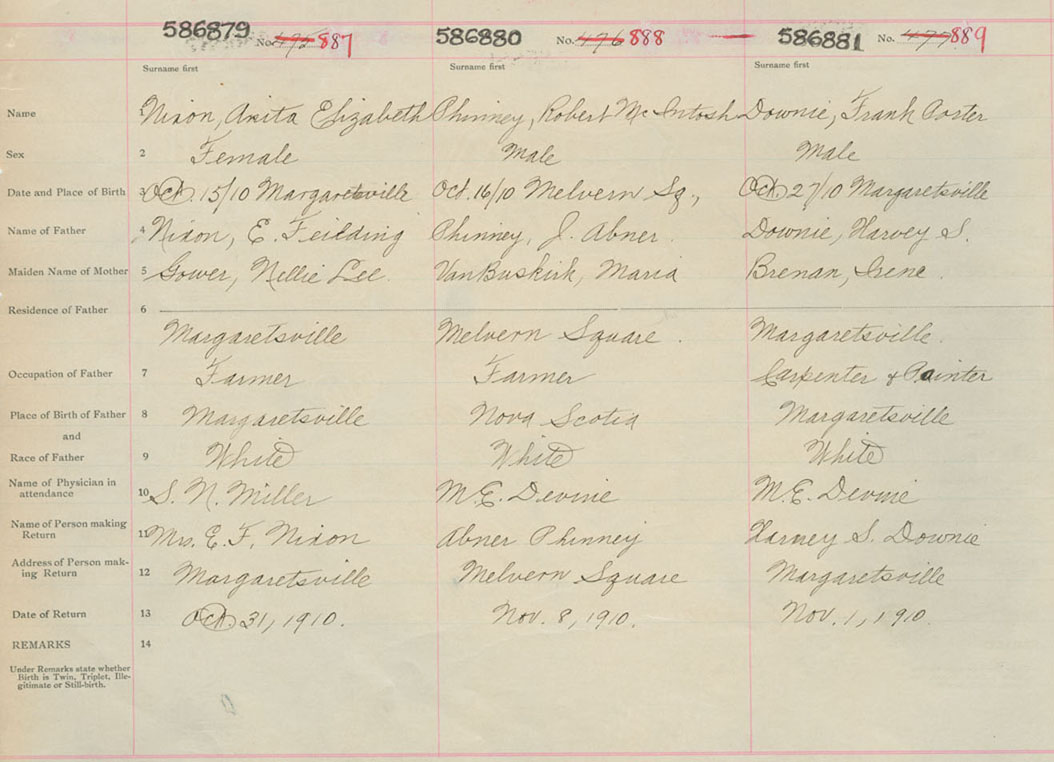 586879 No. 475 887 586880 No. 476 888 586881 No. 477 889
Surname first Surname first Surname first
Name 1 Nixon, Anita Elizabeth Phinney, Robert McIntosh Downie, Frank Porter
Sex 2 Female Male Male
Date and Place of Birth 3 Oct. 15/10 Margaretsville Oct. 16/10 Melvern Sq., Oct. 27/10 Margaretsville
Name of Father 4 Nixon, E. Feilding Phinney, J. Abner. Downie, Harvey S.
Maiden Name of Mother 5 Gower, Nellie Lee. VanBuskirk, Maria Brenan, Irene.
Residence of Father 6
Margaretsville Melvern Square. Margaretsville.
Occupation of Father 7 Farmer Farmer Carpenter & Painter
Place of Birth of Father 8 Margaretsville Nova Scotia Margaretsville
and
Race of Father 9 White White White
Name of Physician in
attendance 10 S. N. Miller M.E. Devine M.E. Devine
Name of Person making
Return 11 Mrs. E. F. Nixon Abner Phinney Harvey S. Downie
Address of Person mak-
ing Return 12 Margaretsville Melvern Square Margaretsville
Date of Return 13 Oct. 31, 1910. Nov. 8, 1910. Nov. 1, 1910.
REMARKS 14
Under Remarks state whether
Birth is Twin, Triplet, Ille-
gitimate or Still-birth.